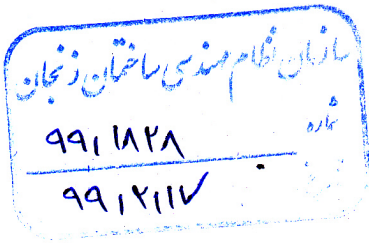 سازمان نظام مهندسی ساختمان زنجان
شماره
۹۹/۱۸۲۸
۹۹/۲/۱۷